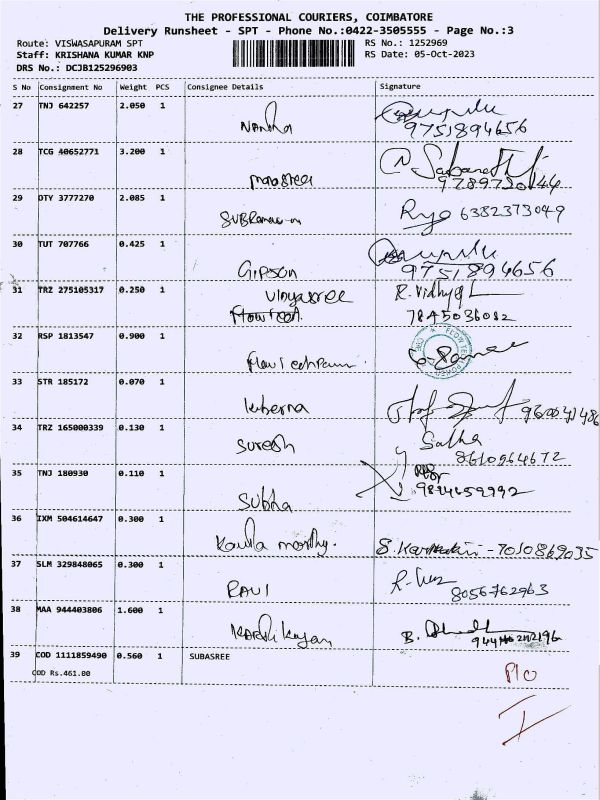 THE PROFESSIONAL COURIERS, COIMBATORE
Delivery Runsheet - SPT - Phone No.:0422-3505555 - Page No.:3
Route: VISWASAPURAM SPT RS No.: 1252969
Staff: KRISHANA KUMAR KNP RS Date: 05-Oct-2023
DRS No.: DCJB125296903
S No Consignment No Weight PCS Consignee Details Signature
27 TNJ 642257 2.050 1
Nandha 9751894656
28 TCG 40652771 3.200 1
29 DTY 3777270 2.085 1
6382373049
30 TUT 707766 0.425 1
Gipson 9751894656
31 TRZ 275105317 0.250 1
Vinyasree R. Vidhya
7845036082
32 RSP 1813547 0.900 1
33 STR 185172 0.070 1
Kuberna
34 TRZ 165000339 0.130 1
Suresh Satha
8610964672
35 TNJ 180930 0.110 1
Subha
36 IXM 504614647 0.300 1
moorthy. - 7010869035
37 SLM 329848065 0.300 1
RAVI 8056762963
38 MAA 944403806 1.600 1
Karthikayan
39 COD 1111859490 0.560 1 SUBASREE
COD Rs.461.00
P/O